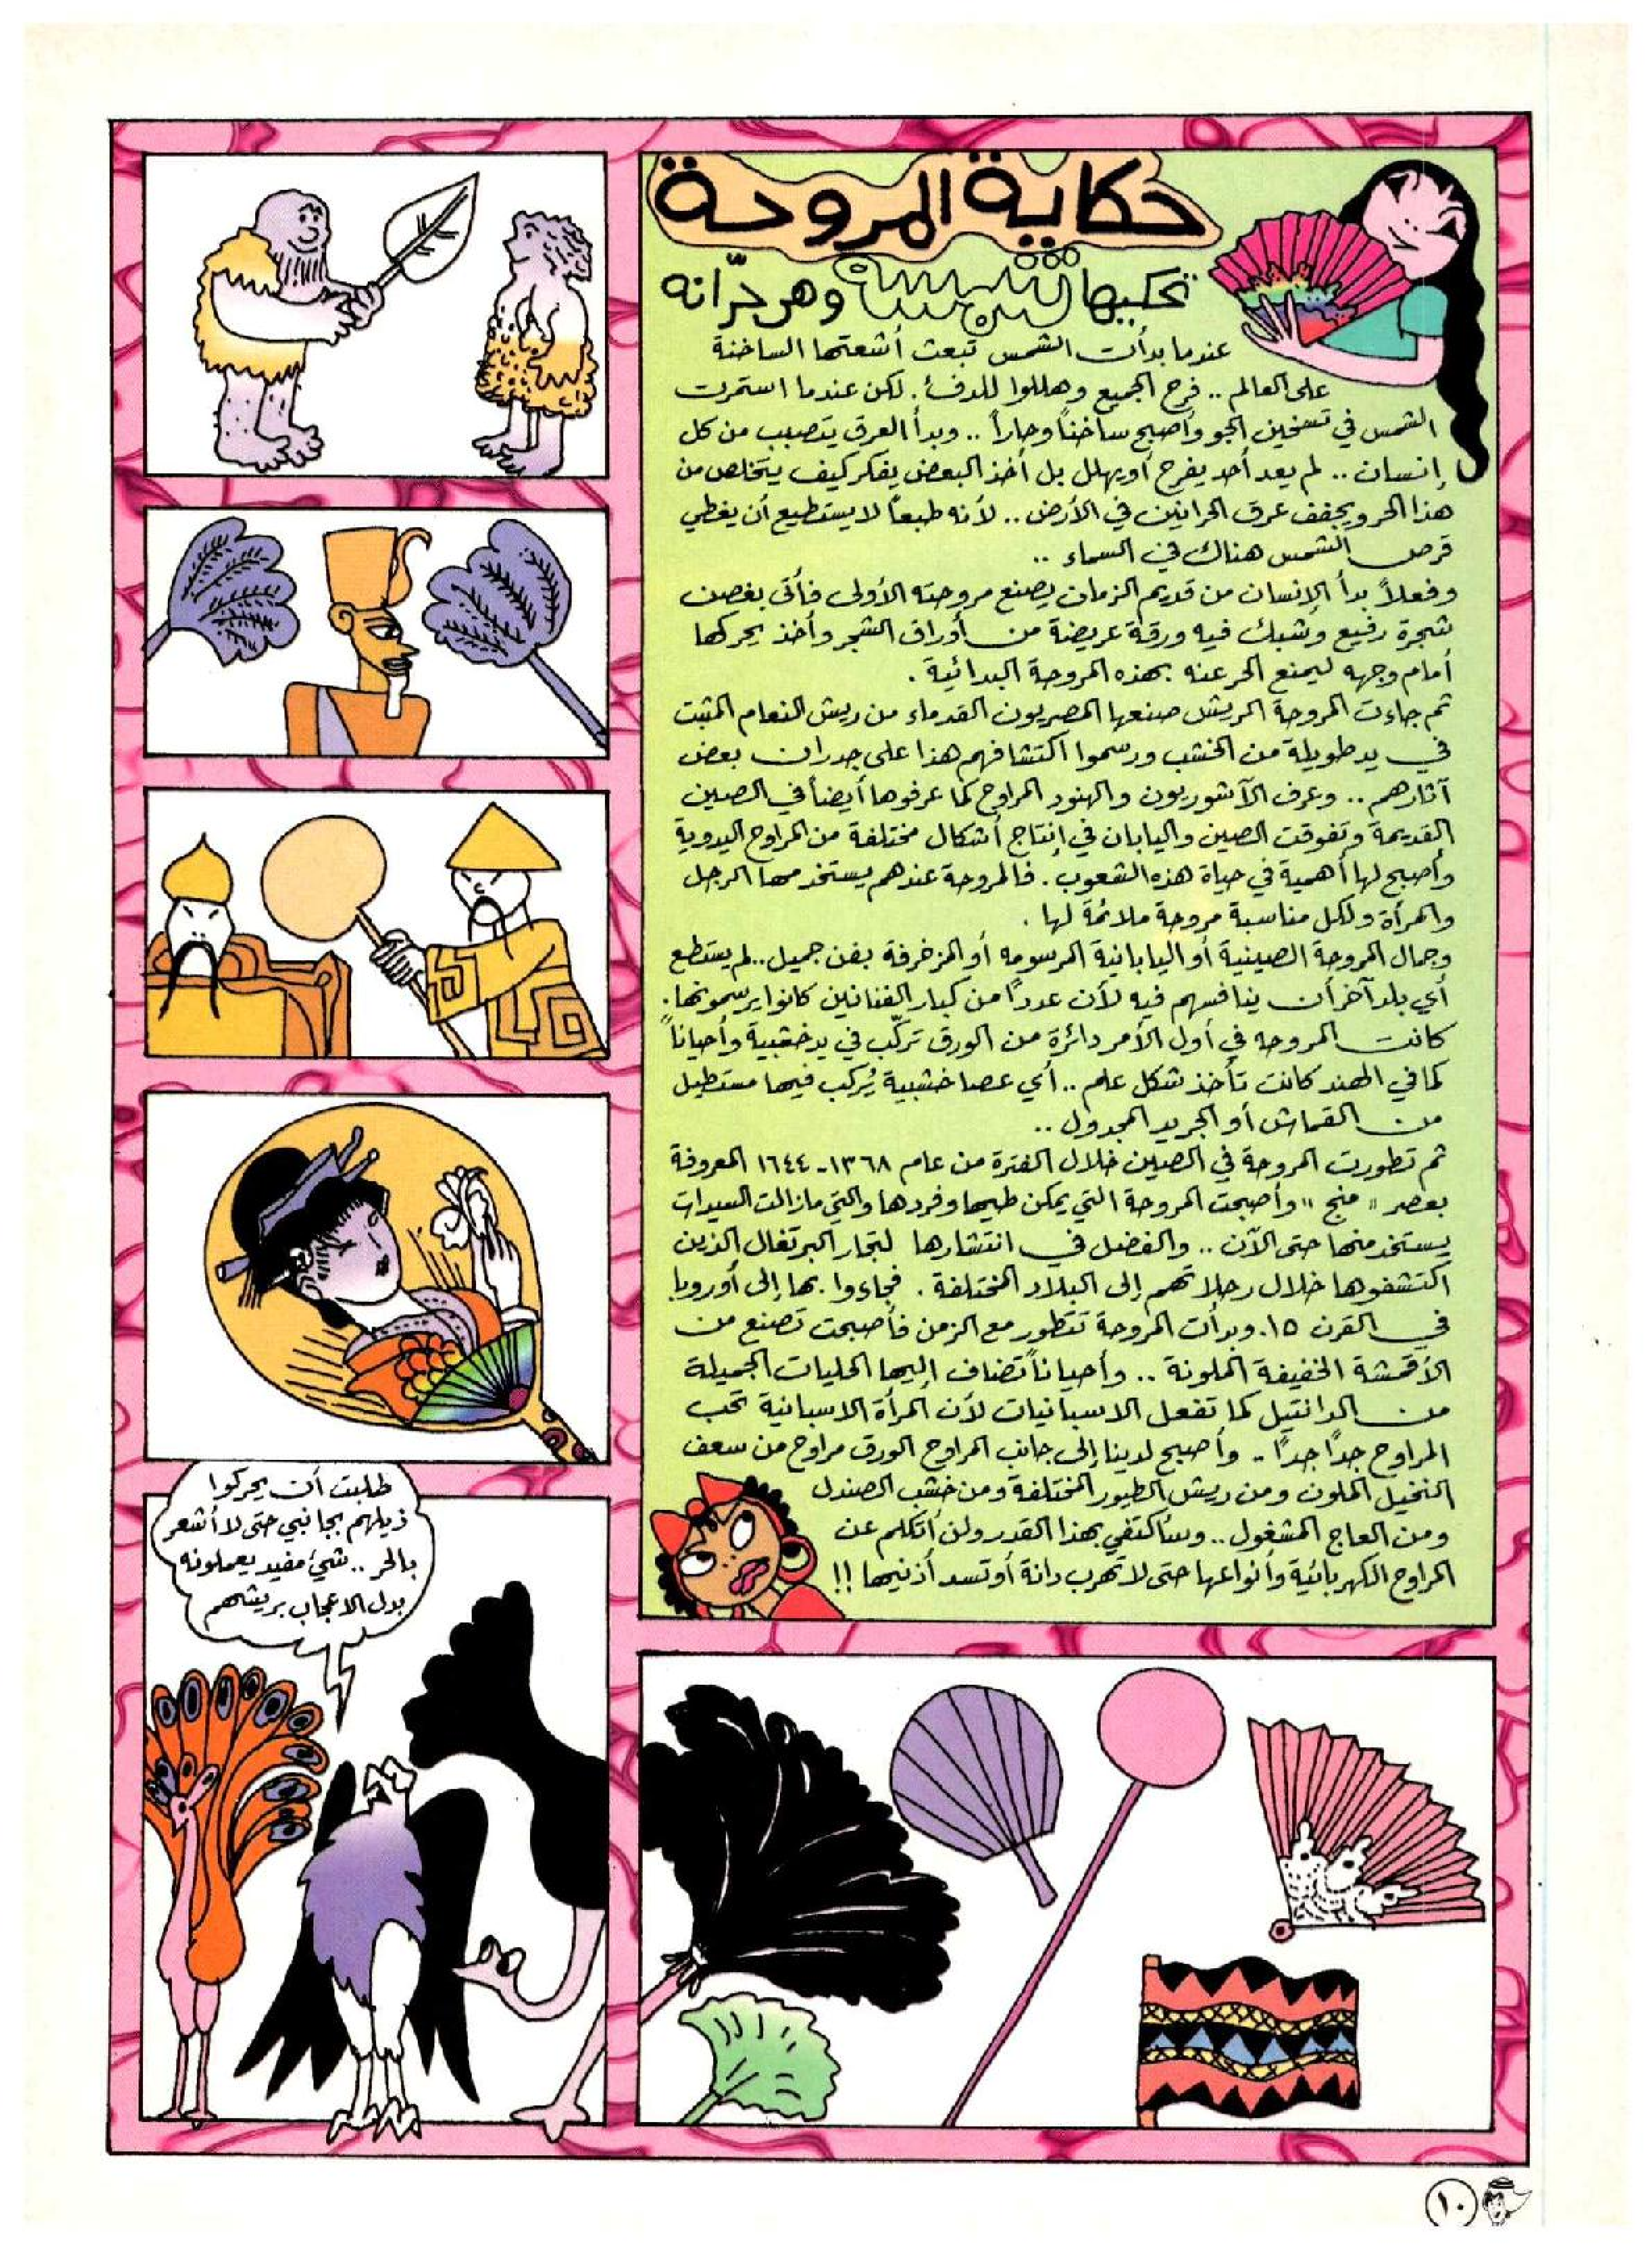 حكاية المروحة
تحكيها شمسة وهي حرّانه
عندما بدأت الشمس تبعث أشعتها الساخنة
على العالم .. فرح الجميع وهللوا للدفء. لكن عندما استمرت
الشمس في تسخين الجو وأصبح ساخناً وحاراً .. وبدأ العرق يتصبب من كل
إنسان .. لم يعد أحد يفرح أو يهلل بل أخذ البعض يفكر كيف يتخلص من
هذا الحر ويجفف عرق الحرانين في الأرض .. لأنه طبعاً لا يستطيع أن يغطي
قرص الشمس هناك في السماء ..
وفعلاً بدأ الإنسان من قديم الزمان يصنع مروحته الأولى فأتى بغصن
شجرة رفيع وشبك فيه ورقة عريضة من أوراق الشجر وأخذ يحركها
أمام وجهه ليمنع الحر عنه بهذه المروحة البدائية .
ثم جاءت المروحة الريش صنعها المصريون القدماء من ريش النعام المثبت
في يد طويلة من الخشب ورسموا اكتشافهم هذا على جدران بعض
آثارهم .. وعرف الآشوريون والهنود المراوح كما عرفوها أيضاً في الصين
القديمة وتفوقت الصين واليابان في إنتاج أشكال مختلفة من المراوح اليدوية
وأصبح لها أهمية في حياة هذه الشعوب . فالمروحة عندهم يستخدمها الرجل
والمرأة ولكل مناسبة مروحة ملائمة لها .
وجمال المروحة الصينية أو اليابانية المرسومه أو المزخرفة بفن جميل .. لم يستطع
أي بلد آخر أن ينافسهم فيه لأن عدداً من كبار الفنانين كانوا يرسمونها .
كانت المروحه في أول الأمر دائرة من الورق تركّب في يد خشبية وأحياناً
كما في الهند كانت تأخذ شكل علم .. أي عصا خشبية يُركب فيها مستطيل
من القماش أو الجريد المجدول ..
ثم تطورت المروحة في الصين خلال الفترة من عام ١٣٦٨-١٦٤٤ المعروفة
بعصر " منج " وأصبحت المروحة التي يمكن طيها وفردها والتي مازالت السيدات
يستخدمنها حتى الآن .. والفضل في انتشارها لتجار البرتغال الذين
اكتشفوها خلال رحلاتهم إلى البلاد المختلفة . فجاءوا بها إلى أوروبا
في القرن ١٥. وبدأت المروحة تتطور مع الزمن فأصبحت تصنع من
الأقمشة الخفيفة الملونة .. وأحياناً تضاف إليها الحليات الجميلة
من الدانتيل كما تفعل الاسبانيات لأن المرأة الاسبانية تحب
المراوح جداً جداً .. وأصبح لدينا إلى جانب المراوح الورق مراوح من سعف
النخيل الملون ومن ريش الطيور المختلفة ومن خشب الصندل
ومن العاج المشغول .. وسأكتفي بهذا القدر ولن أتكلم عن
المراوح الكهربائية وأنواعها حتى لا تهرب دانة أو تسد أذنيها !!
طلبت أن يحركوا
ذيلهم بجانبي حتى لا أشعر
بالحر .. شيء مفيد يعملونه
بدل الاعجاب بريشهم
١٠